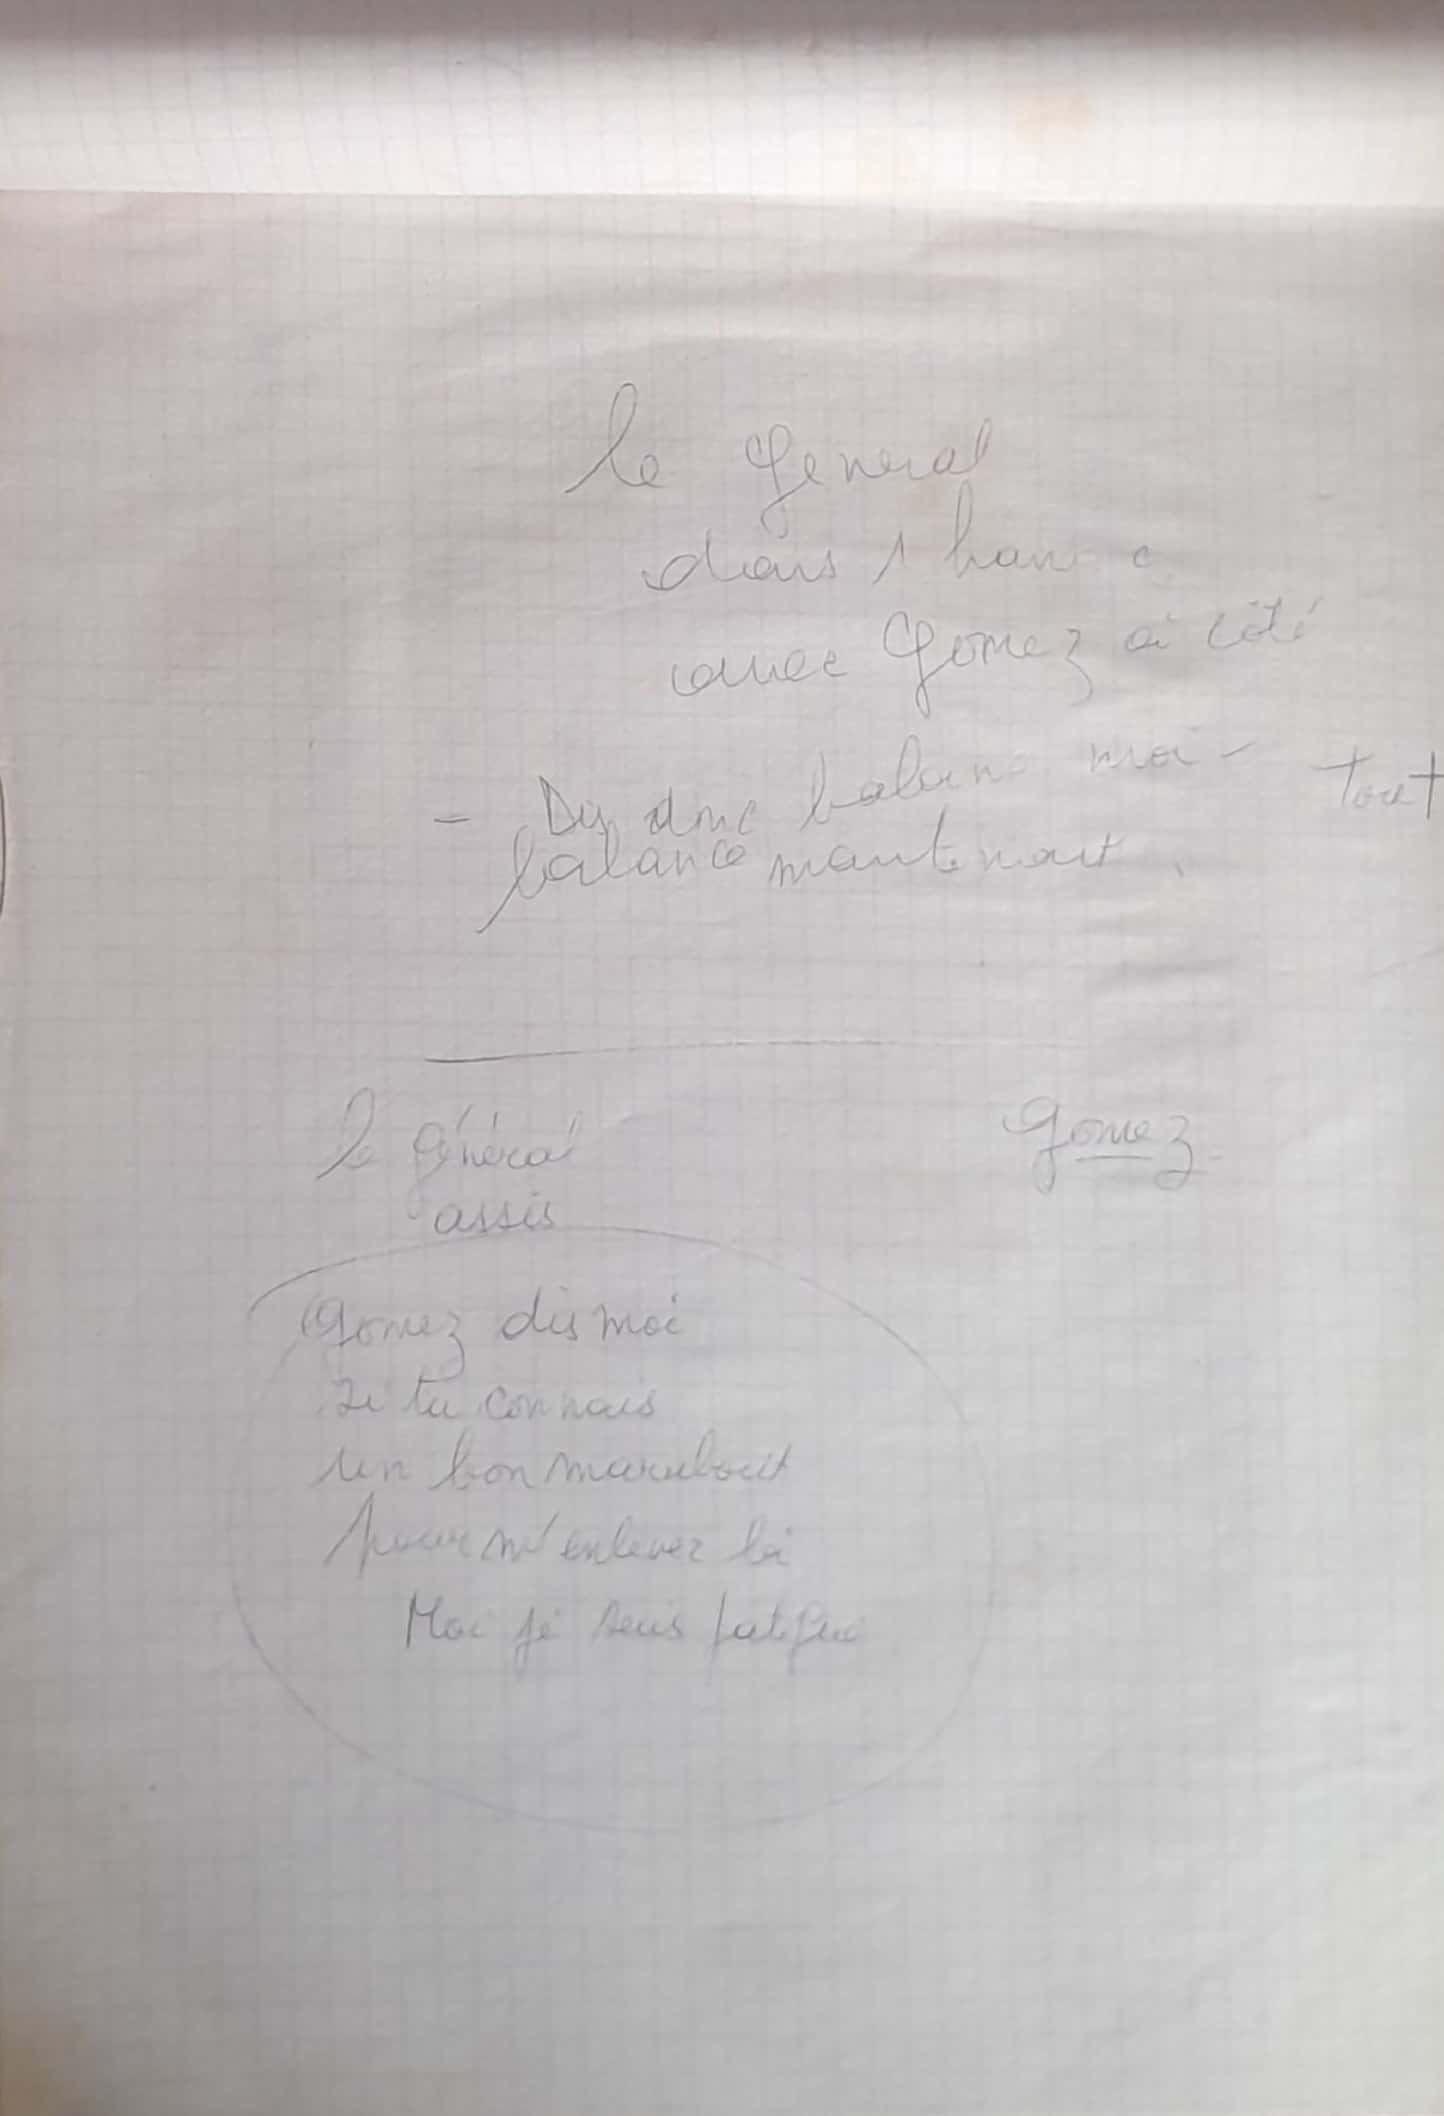 le General
dans 1
avec Gomez à côté
- Dis donc balance moi - tout
balance maintenant.
le général
assis
Gomez
Gomez dis moi
si tu connais
un bon marabout
pour m'enlever là
Moi je suis fatigué